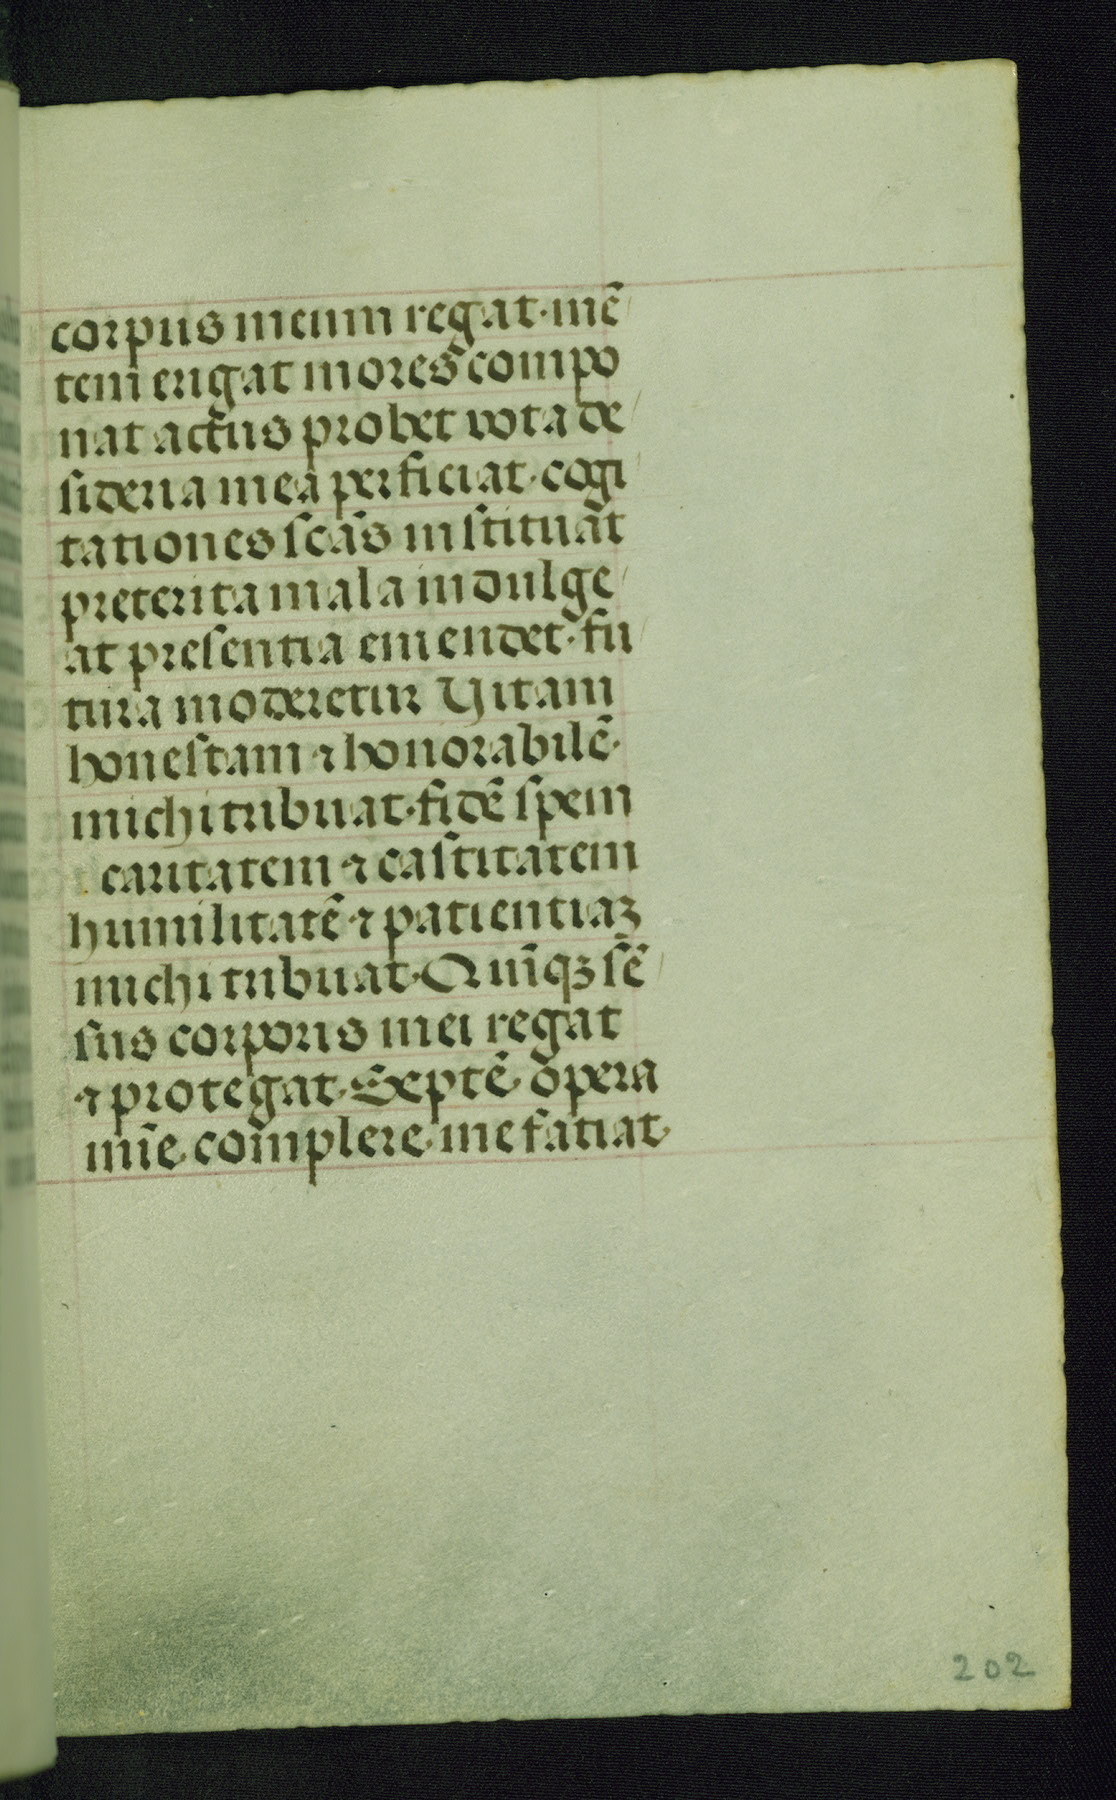 corpus meum regat · mē
tem erigat mores compo
nat actus probet vota de
sideria mea perficiat · cogi
tationes scās instituāt
preterita mala indulge
at presentia emendet · fu
tura moderetur Vitam
honestam ⁊ honorabilē ·
michi tribuat · fidē spem
caritatem ⁊ castitatem
humilitatē ⁊ patientiaꝫ
michi tribuat · Quīqꝫ sē
sus corporis mei regat
⁊ protegat · Septē opera
mīe complere me fatiat ·
202